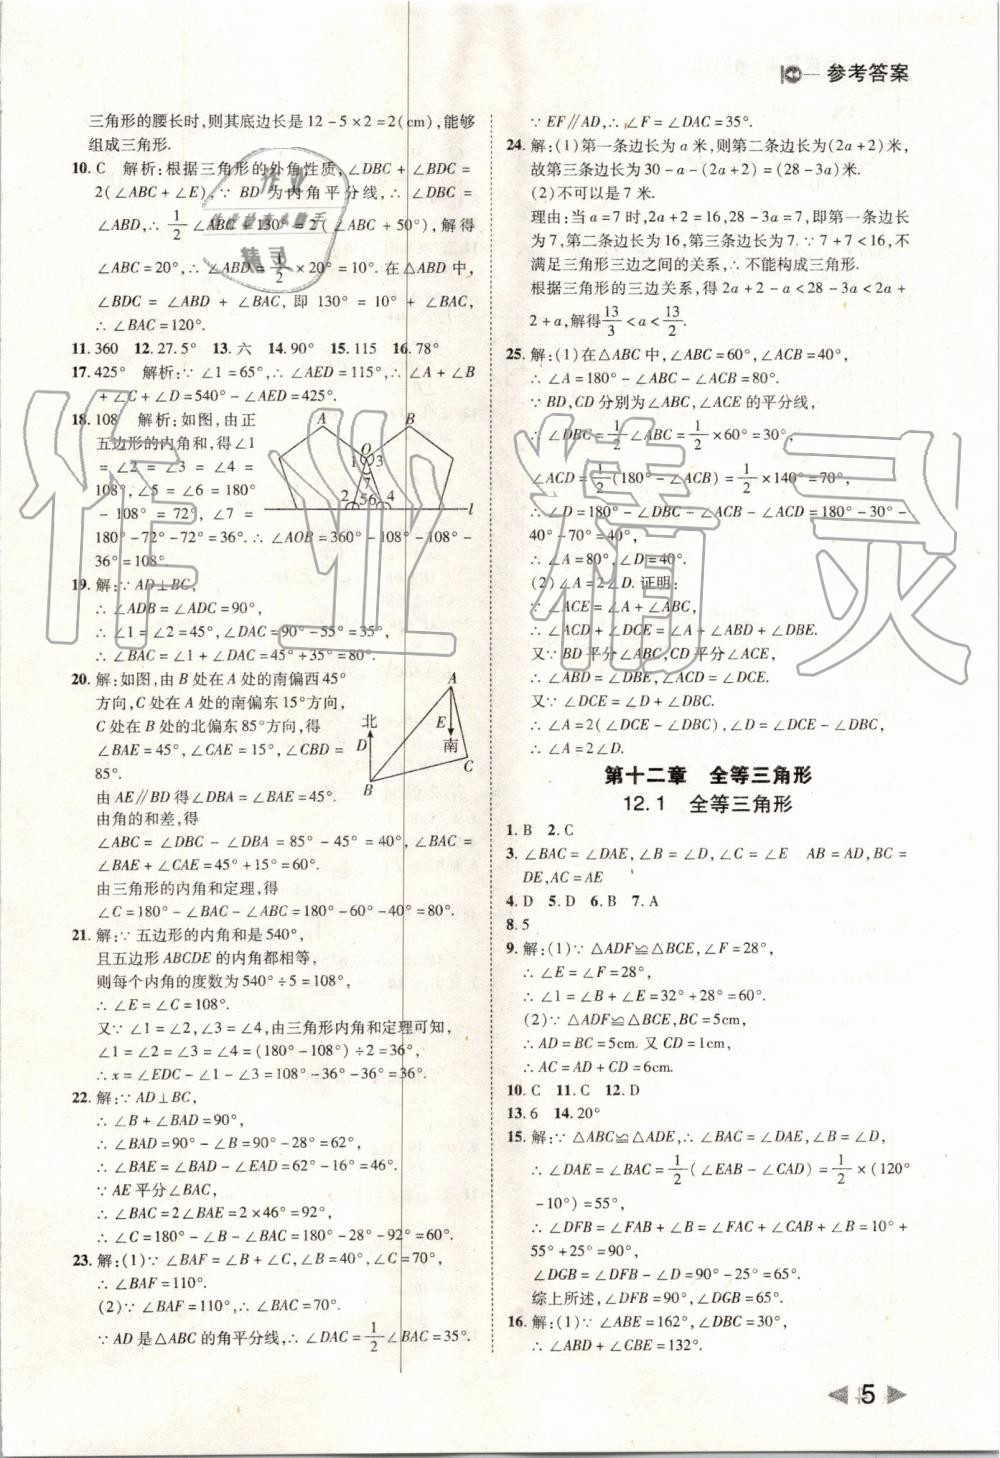 参考答案
三角形的腰长时,则其底边长是12-5×2=2(cm),能够
组成三角形.
10. C 解析:根据三角形的外角性质,∠DBC+∠BDC=
2(∠ABC+∠E),∵ BD为内角平分线,∴∠DBC=
∠ABD,∴1/2∠ABC+130°=2(∠ABC+50°),解得
∠ABC=20°,∴∠ABD=1/2×20°=10°.在△ABD中,
∠BDC=∠ABD+∠BAC,即130°=10°+∠BAC,
∴∠BAC=120°.
11. 360 12. 27.5° 13. 六 14. 90° 15. 115 16. 78°
17. 425° 解析:∵∠1=65°,∴∠AED=115°,∴∠A+∠B
+∠C+∠D=540°-∠AED=425°.
18. 108 解析:如图,由正
五边形的内角和,得∠1
=∠2=∠3=∠4=
108°,∠5=∠6=180°
-108°=72°,∠7=
180°-72°-72°=36°.∴∠AOB=360°-108°-108°-
36°=108°.
A B O 1 3 7 2 5 6 4 l
19. 解:∵AD⊥BC,
∴∠ADB=∠ADC=90°,
∴∠1=∠2=45°,∠DAC=90°-55°=35°,
∴∠BAC=∠1+∠DAC=45°+35°=80°.
20. 解:如图,由B处在A处的南偏西45°
方向,C处在A处的南偏东15°方向,
C处在B处的北偏东85°方向,得
∠BAE=45°,∠CAE=15°,∠CBD=
85°.
北 A D E 南 C B
由AE∥BD得∠DBA=∠BAE=45°.
由角的和差,得
∠ABC=∠DBC-∠DBA=85°-45°=40°,∠BAC=
∠BAE+∠CAE=45°+15°=60°.
由三角形的内角和定理,得
∠C=180°-∠BAC-∠ABC=180°-60°-40°=80°.
21. 解:∵五边形的内角和是540°,
且五边形ABCDE的内角都相等,
则每个内角的度数为540°÷5=108°,
∴∠E=∠C=108°.
又∵∠1=∠2,∠3=∠4,由三角形内角和定理可知,
∠1=∠2=∠3=∠4=(180°-108°)÷2=36°,
∴x=∠EDC-∠1-∠3=108°-36°-36°=36°.
22. 解:∵AD⊥BC,
∴∠B+∠BAD=90°,
∴∠BAD=90°-∠B=90°-28°=62°,
∴∠BAE=∠BAD-∠EAD=62°-16°=46°.
∵AE平分∠BAC,
∴∠BAC=2∠BAE=2×46°=92°,
∴∠C=180°-∠B-∠BAC=180°-28°-92°=60°.
23. 解:(1)∵∠BAF=∠B+∠C,∠B=40°,∠C=70°,
∴∠BAF=110°.
(2)∵∠BAF=110°,∴∠BAC=70°.
∵AD是△ABC的角平分线,∴∠DAC=1/2∠BAC=35°.
∵EF∥AD,∴∠F=∠DAC=35°.
24. 解:(1)第一条边长为a米,则第二条边长为(2a+2)米,
故第三条边长为30-a-(2a+2)=(28-3a)米.
(2)不可以是7米.
理由:当a=7时,2a+2=16,28-3a=7,即第一条边长
为7,第二条边长为16,第三条边长为7.∵7+7<16,不
满足三角形三边之间的关系,∴不能构成三角形.
根据三角形的三边关系,得2a+2-a<28-3a<2a+
2+a,解得13/3<a<13/2.
25. 解:(1)在△ABC中,∠ABC=60°,∠ACB=40°,
∴∠A=180°-∠ABC-∠ACB=80°.
∵BD,CD分别为∠ABC,∠ACE的平分线,
∴∠DBC=1/2∠ABC=1/2×60°=30°,
∠ACD=1/2(180°-∠ACB)=1/2×140°=70°,
∴∠D=180°-∠DBC-∠ACB-∠ACD=180°-30°-
40°-70°=40°,
∴∠A=80°,∠D=40°.
(2)∠A=2∠D.证明:
∵∠ACE=∠A+∠ABC,
∴∠ACD+∠DCE=∠A+∠ABD+∠DBE.
又∵BD平分∠ABC,CD平分∠ACE,
∴∠ABD=∠DBE,∠ACD=∠DCE.
又∵∠DCE=∠D+∠DBC.
∴∠A=2(∠DCE-∠DBC),∠D=∠DCE-∠DBC,
∴∠A=2∠D.
第十二章 全等三角形
12.1 全等三角形
1. B 2. C
3. ∠BAC=∠DAE,∠B=∠D,∠C=∠E AB=AD,BC=
DE,AC=AE
4. D 5. D 6. B 7. A
8. 5
9. 解:(1)∵△ADF≌△BCE,∠F=28°,
∴∠E=∠F=28°,
∴∠1=∠B+∠E=32°+28°=60°.
(2)∵△ADF≌△BCE,BC=5cm,
∴AD=BC=5cm.又CD=1cm,
∴AC=AD+CD=6cm.
10. C 11. C 12. D
13. 6 14. 20°
15. 解:∵△ABC≌△ADE,∴∠BAC=∠DAE,∠B=∠D,
∴∠DAE=∠BAC=1/2(∠EAB-∠CAD)=1/2×(120°
-10°)=55°,
∴∠DFB=∠FAB+∠B=∠FAC+∠CAB+∠B=10°+
55°+25°=90°,
∠DGB=∠DFB-∠D=90°-25°=65°.
综上所述,∠DFB=90°,∠DGB=65°.
16. 解:(1)∵∠ABE=162°,∠DBC=30°,
∴∠ABD+∠CBE=132°.
5
作业
作业检查小助手
精灵
作业精灵